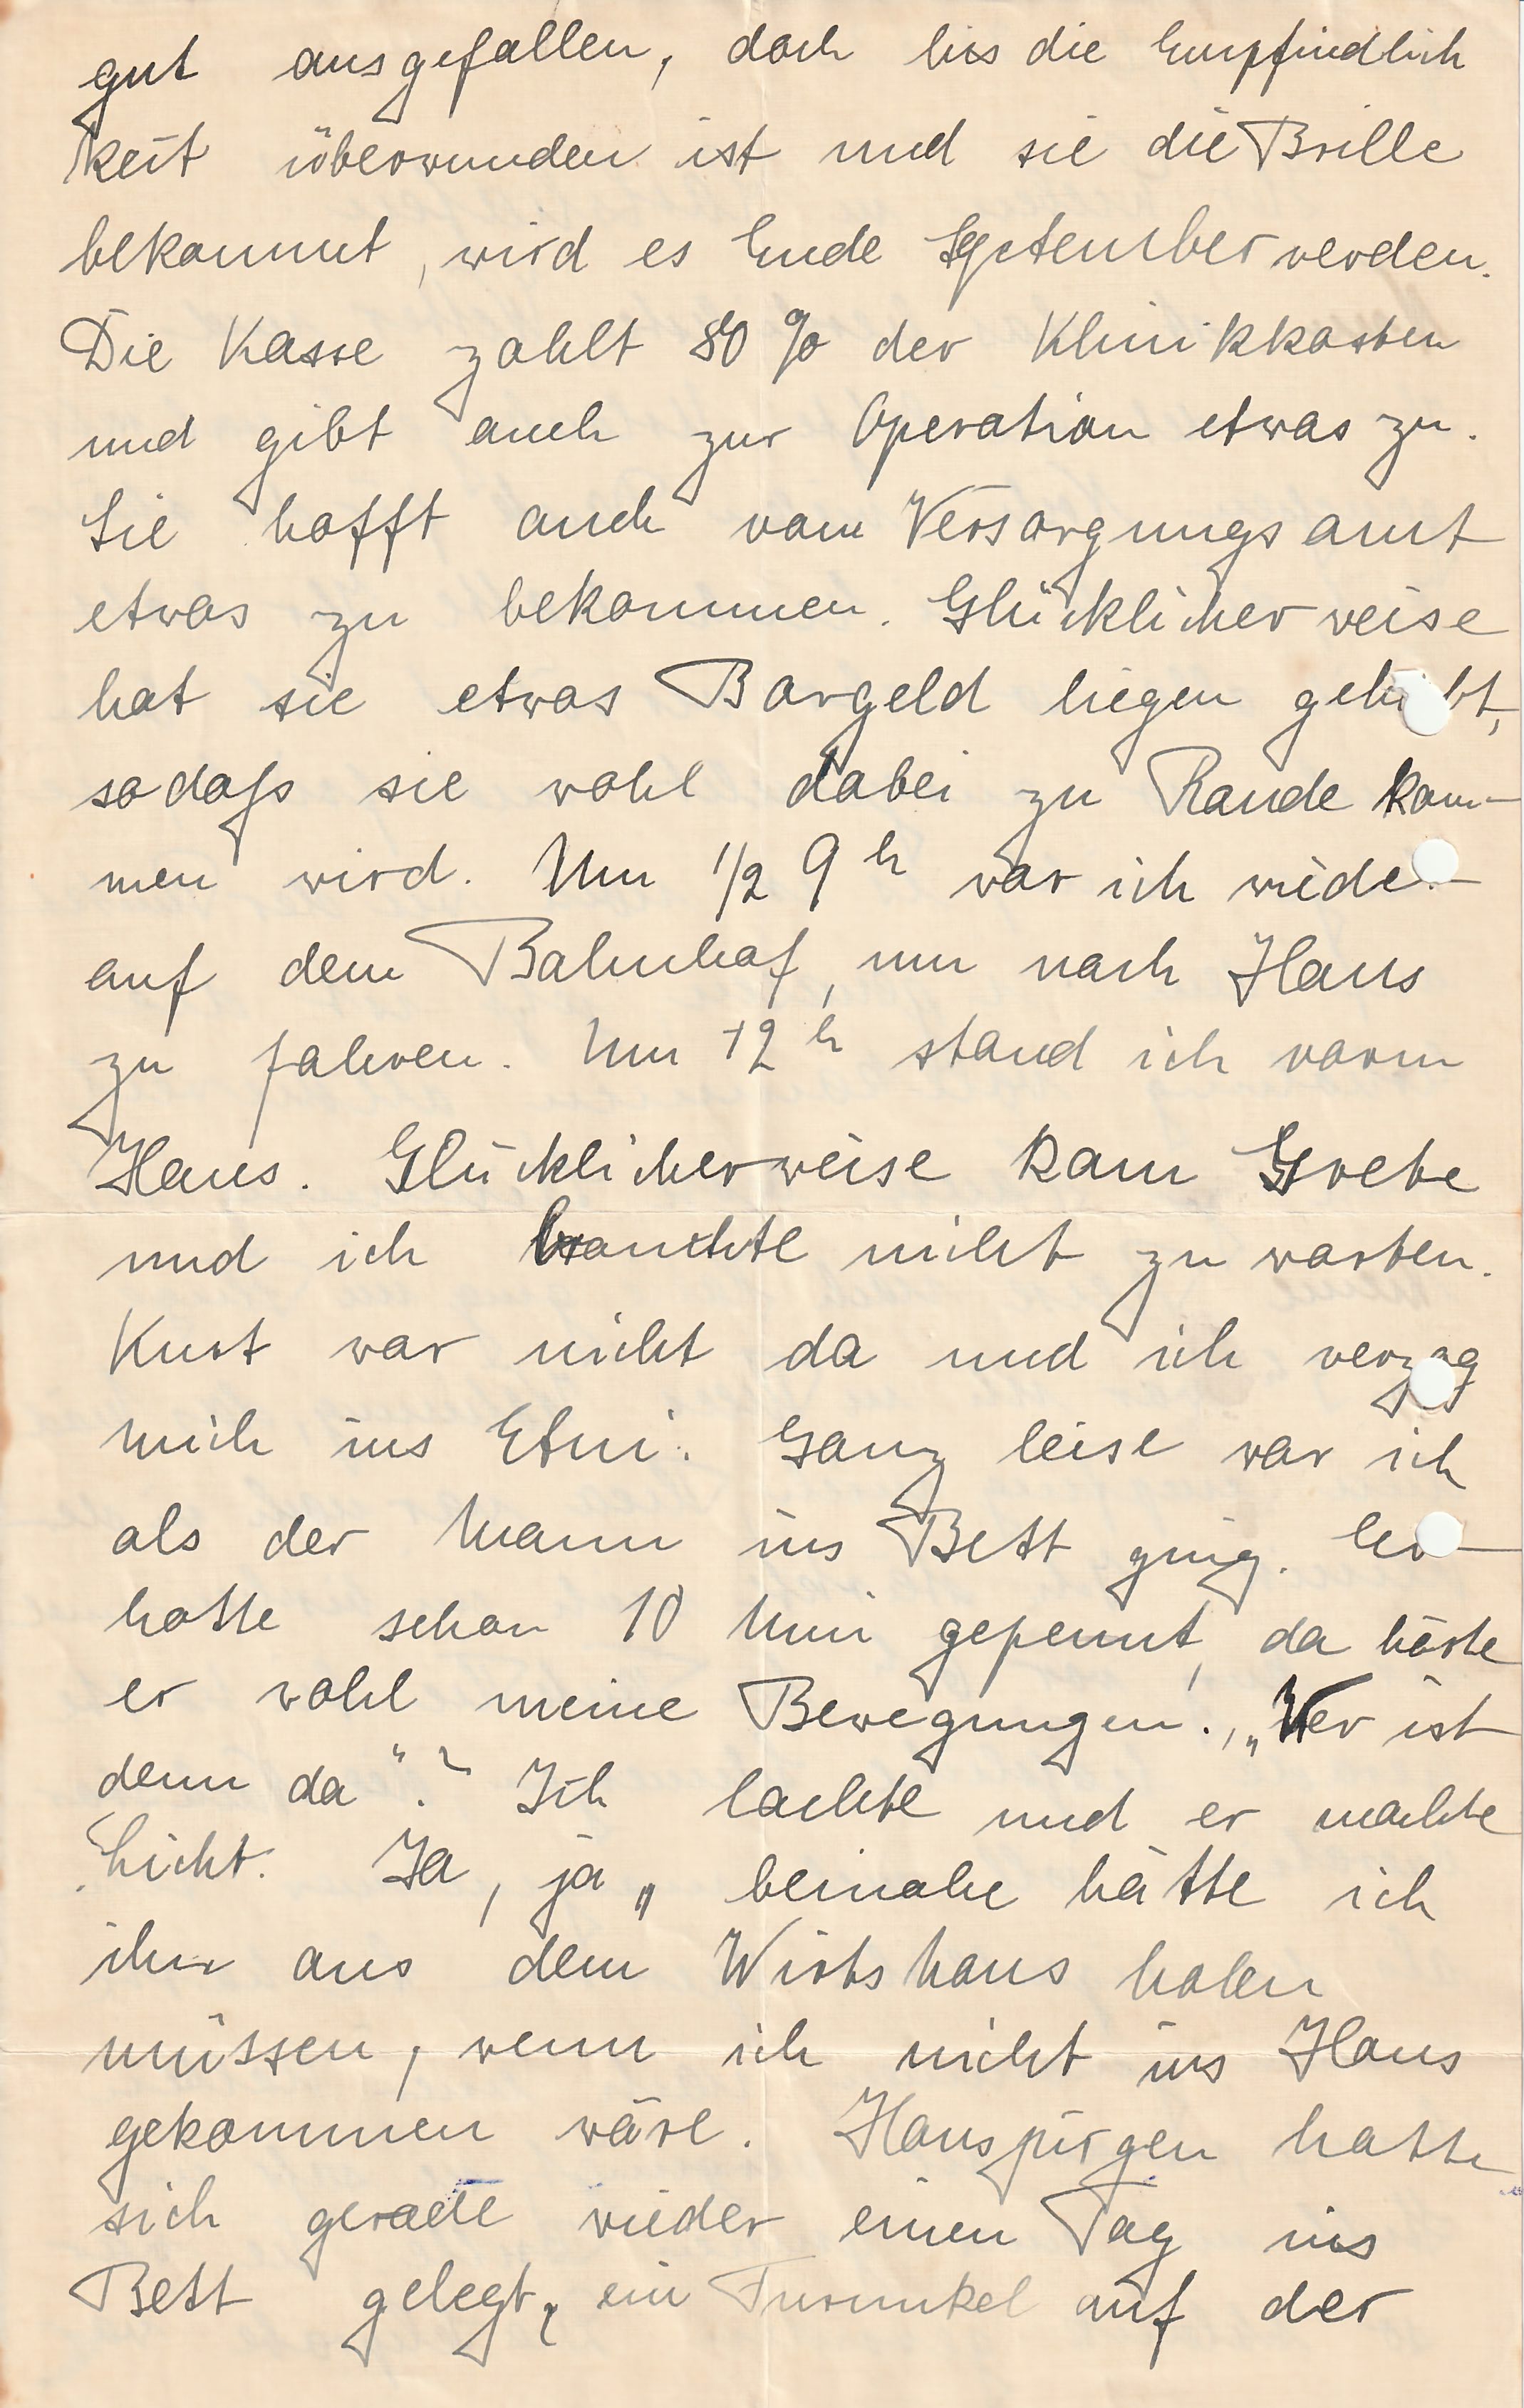 gut ausgefallen, doch bis die Empfindlich
keit überwunden ist und sie die Brille
bekommt, wird es Ende September werden.
Die Kasse zahlt 80 % der Klinikkosten
und gibt auch zur Operation etwas zu.
Sie hofft auch vom Versorgungsamt
etwas zu bekommen. Glücklicherweise
hat sie etwas Bargeld liegen gehabt,
sodaß sie wohl dabei zu Rande kom-
men wird. Um 1/2 9 h war ich wieder
auf dem Bahnhof, um nach Haus
zu fahren. Um 12 h stand ich vorm
Haus. Glücklicherweise kam Grete
und ich brauchte nicht zu warten.
Kurt war nicht da und ich verzog
mich ins Etui. Ganz leise war ich
als der Mann ins Bett ging. Er
hatte schon 10 Min gepennt, da hörte
er wohl meine Bewegungen. „Wer ist
denn da“? Ich lachte und er machte
Licht. Ja, ja „ beinahe hätte ich
ihn aus dem Wirtshaus holen
müssen, wenn ich nicht ins Haus
gekommen wäre. Hansjürgen hatte
sich gerade wieder einen Tag ins
Bett gelegt, ein Furunkel auf der